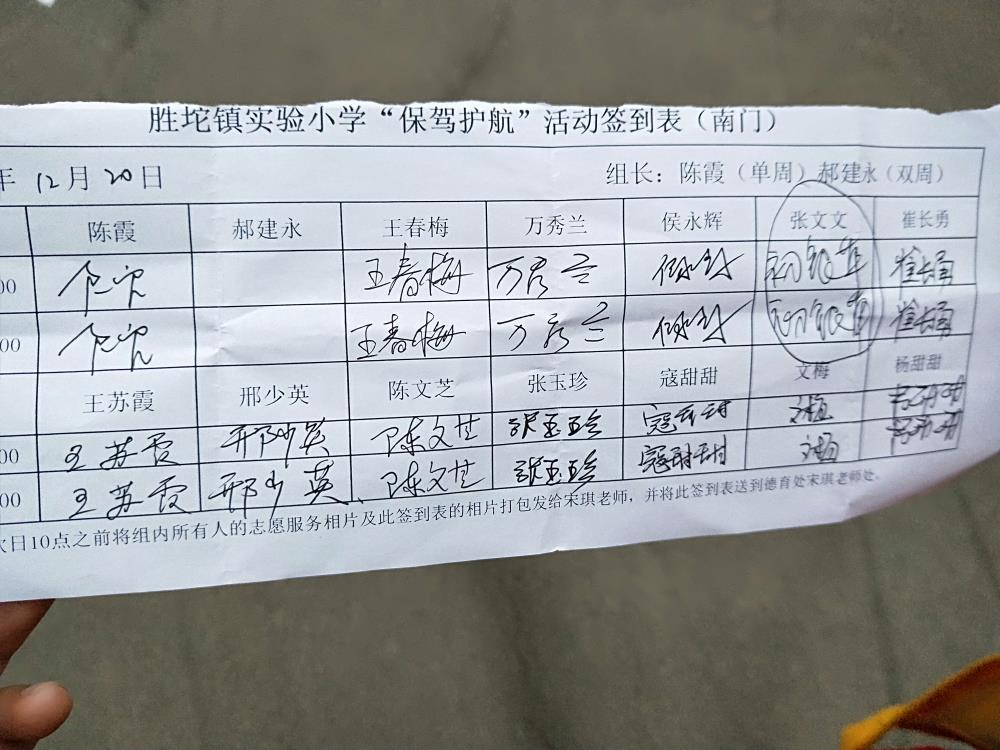 胜坨镇实验小学“保驾护航”活动签到表（南门）
年 12月20日 组长：陈霞（单周）郝建永（双周）
陈霞 郝建永 王春梅 万秀兰 侯永辉 张文文 崔长勇
00 王春梅 万秀兰 崔长勇
00 王春梅 万秀兰 崔长勇
王苏霞 邢少英 陈文芝 张玉珍 寇甜甜 文梅 杨甜甜
00 王苏霞 邢少英 陈文芝 张玉珍 寇甜甜
00 王苏霞 邢少英 陈文芝 张玉珍 寇甜甜
次日10点之前将组内所有人的志愿服务相片及此签到表的相片打包发给宋琪老师，并将此签到表送到德育处宋琪老师处。